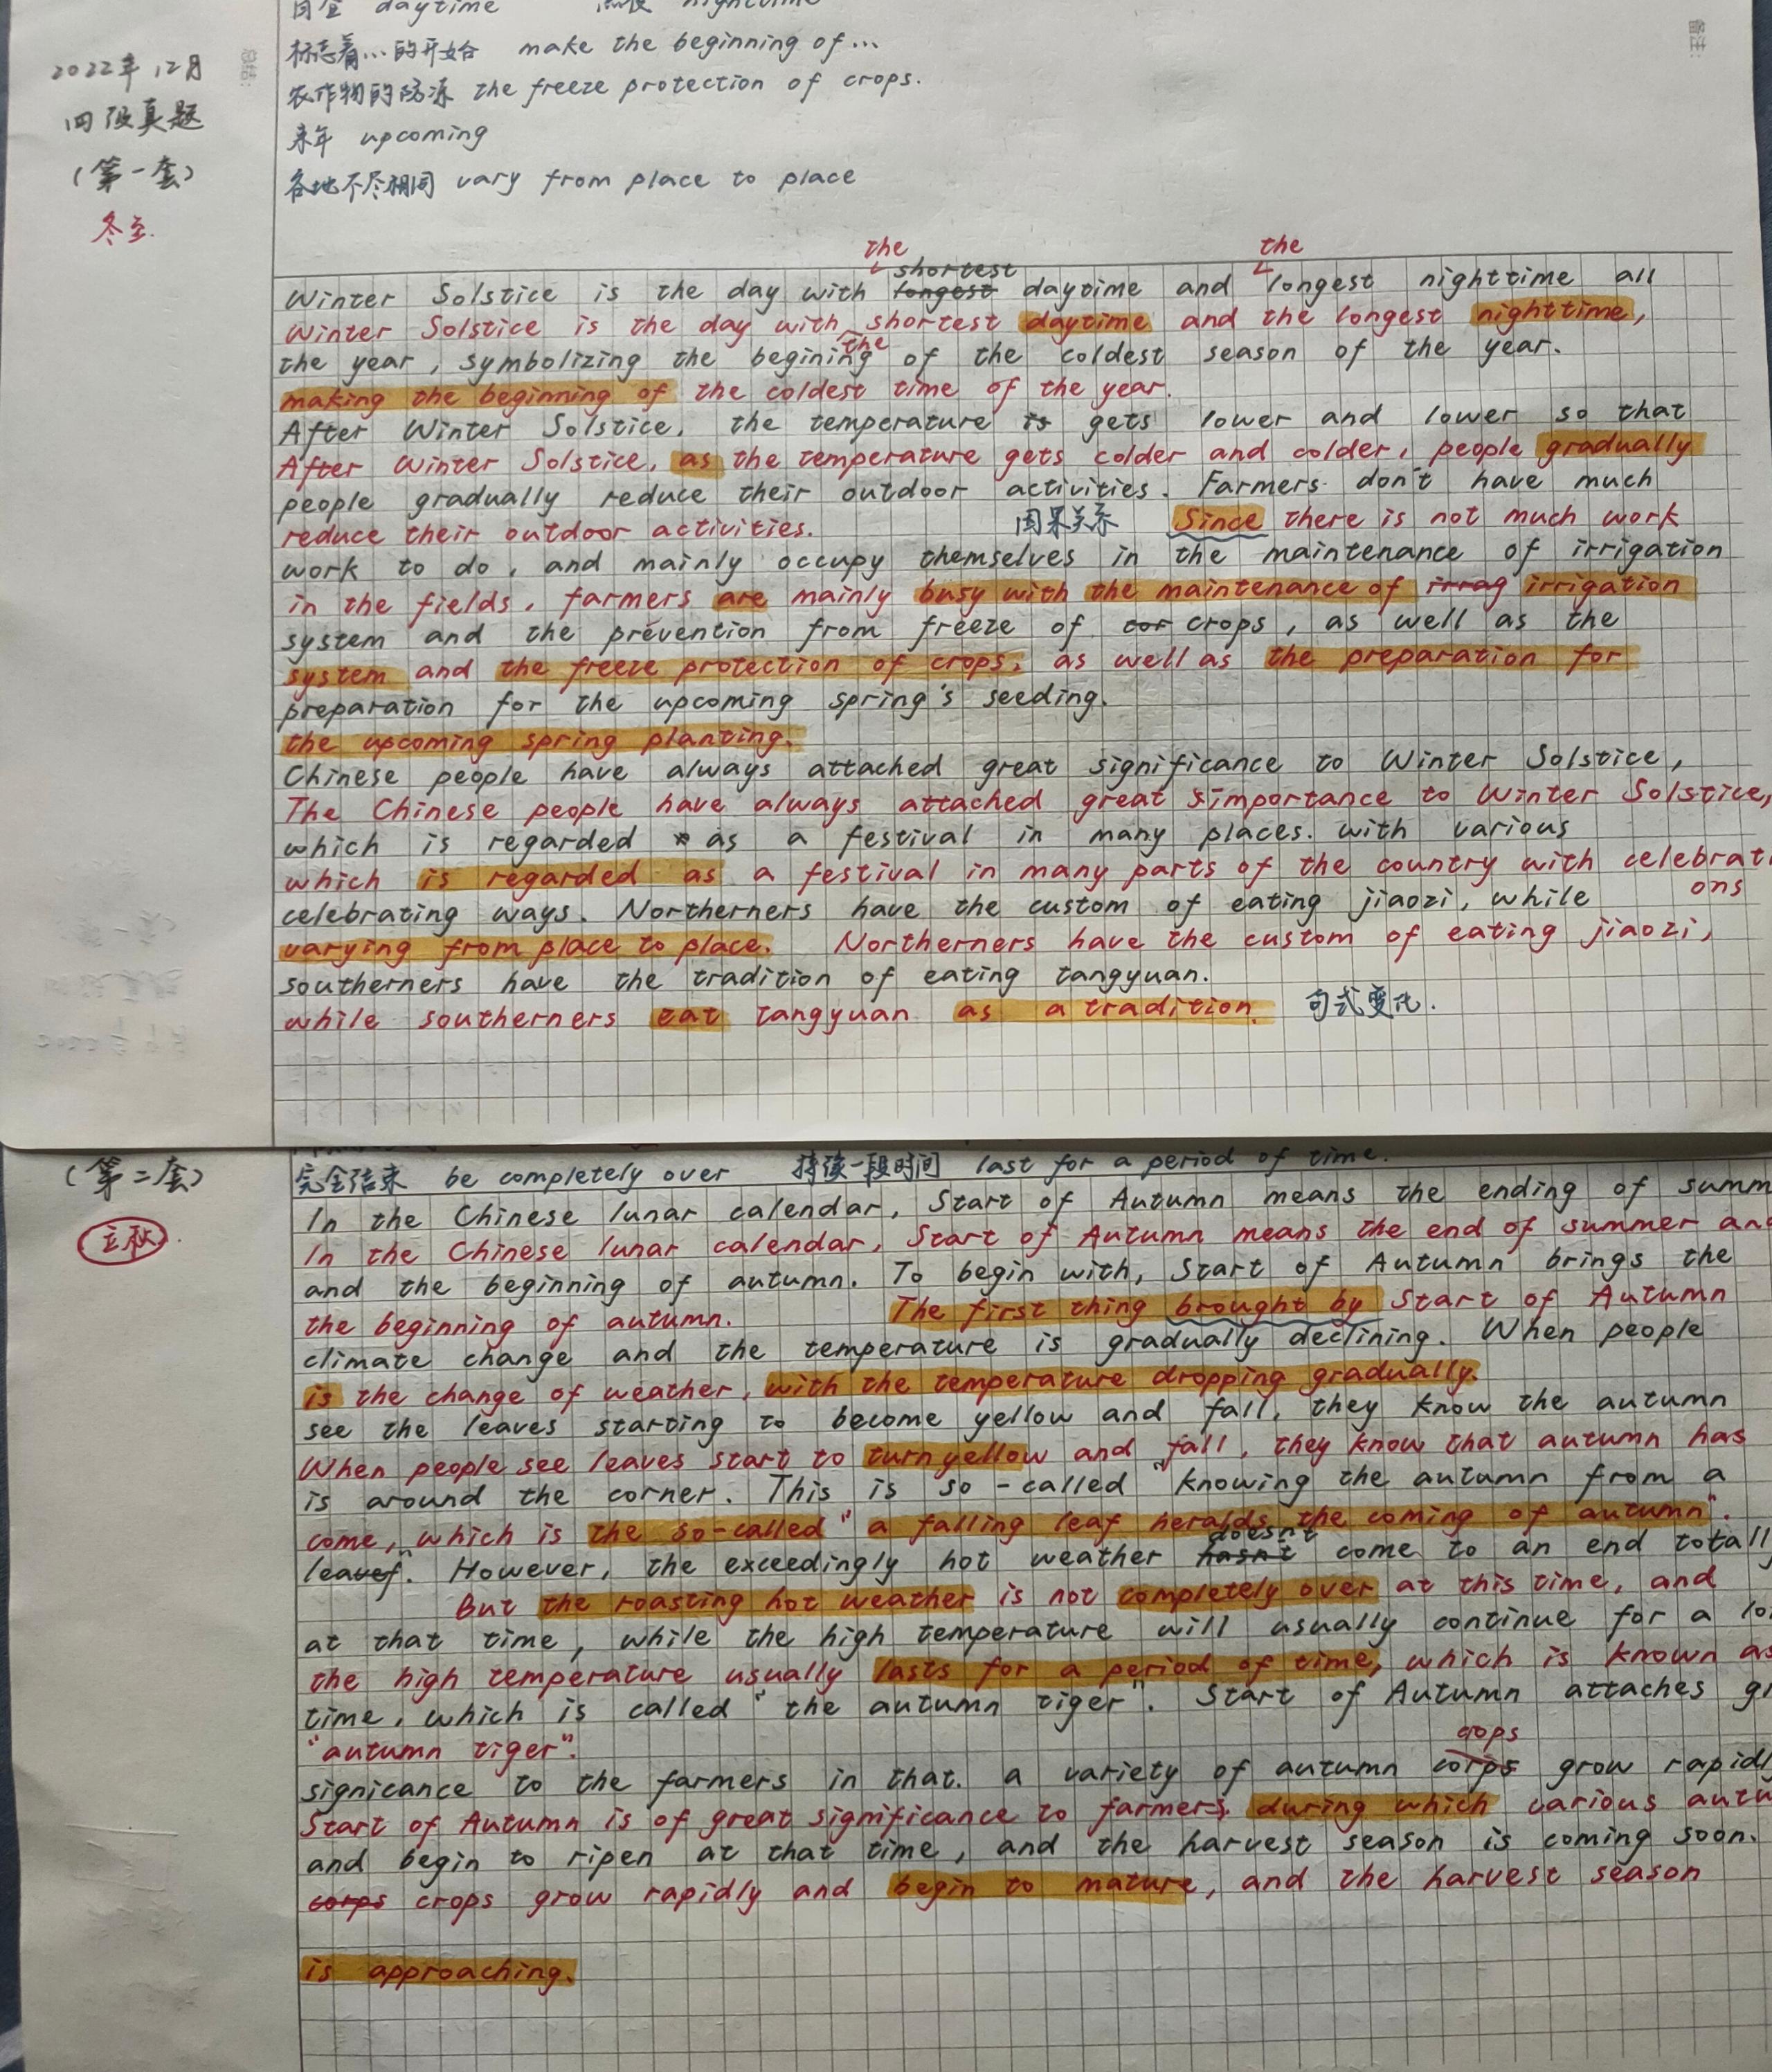 白昼 daytime nighttime
标志着…的开始 make the beginning of...
农作物的防冻 the freeze protection of crops.
来年 upcoming
各地不尽相同 vary from place to place
总结:
备注:
2022年12月
四级真题
(第一套)
冬至.
the the
shortest
Winter Solstice is the day with longest daytime and longest nighttime all
Winter Solstice is the day with shortest daytime and the longest nighttime,
the
the year, symbolizing the begining of the coldest season of the year.
making the beginning of the coldest time of the year.
After Winter Solstice, the temperature is gets lower and lower so that
After Winter Solstice, as the temperature gets colder and colder, people gradually
people gradually reduce their outdoor activities. Farmers don't have much
reduce their outdoor activities. 因果关系 Since there is not much work
work to do, and mainly occupy themselves in the maintenance of irrigation
in the fields, farmers are mainly busy with the maintenance of irrag irrigation
system and the prevention from freeze of cor crops, as well as the
system and the freeze protection of crops, as well as the preparation for
preparation for the upcoming spring's seeding.
the upcoming spring planting.
Chinese people have always attached great significance to Winter Solstice,
The Chinese people have always attached great importance to Winter Solstice,
which is regarded as a festival in many places. with various
which is regarded as a festival in many parts of the country with celebrati
ons
celebrating ways. Northerners have the custom of eating jiaozi, while
varying from place to place. Northerners have the custom of eating jiaozi,
southerners have the tradition of eating tangyuan.
while southerners eat tangyuan as a tradition. 句式变化.
(第二套)
立秋
完全结束 be completely over 持续一段时间 last for a period of time.
In the Chinese lunar calendar, Start of Autumn means the ending of summ
In the Chinese lunar calendar, Start of Autumn means the end of summer and
and the beginning of autumn. To begin with, Start of Autumn brings the
the beginning of autumn. The first thing brought by Start of Autumn
climate change and the temperature is gradually declining. When people
is the change of weather, with the temperature dropping gradually.
see the leaves starting to become yellow and fall, they know the autumn
When people see leaves start to turn yellow and fall, they know that autumn has
is around the corner. This is so-called "knowing the autumn from a
come, which is the so-called "a falling leaf heralds the coming of autumn".
doesn't
leaf". However, the exceedingly hot weather hasn't come to an end totall
But the roasting hot weather is not completely over at this time, and
at that time, while the high temperature will usually continue for a lo
the high temperature usually lasts for a period of time, which is known as
time, which is called "the autumn tiger". Start of Autumn attaches gr
"autumn tiger".
crops
signicance to the farmers in that. a variety of autumn corps grow rapidly
Start of Autumn is of great significance to farmers, during which various autu
and begin to ripen at that time, and the harvest season is coming soon.
corps crops grow rapidly and begin to mature, and the harvest season
is approaching.